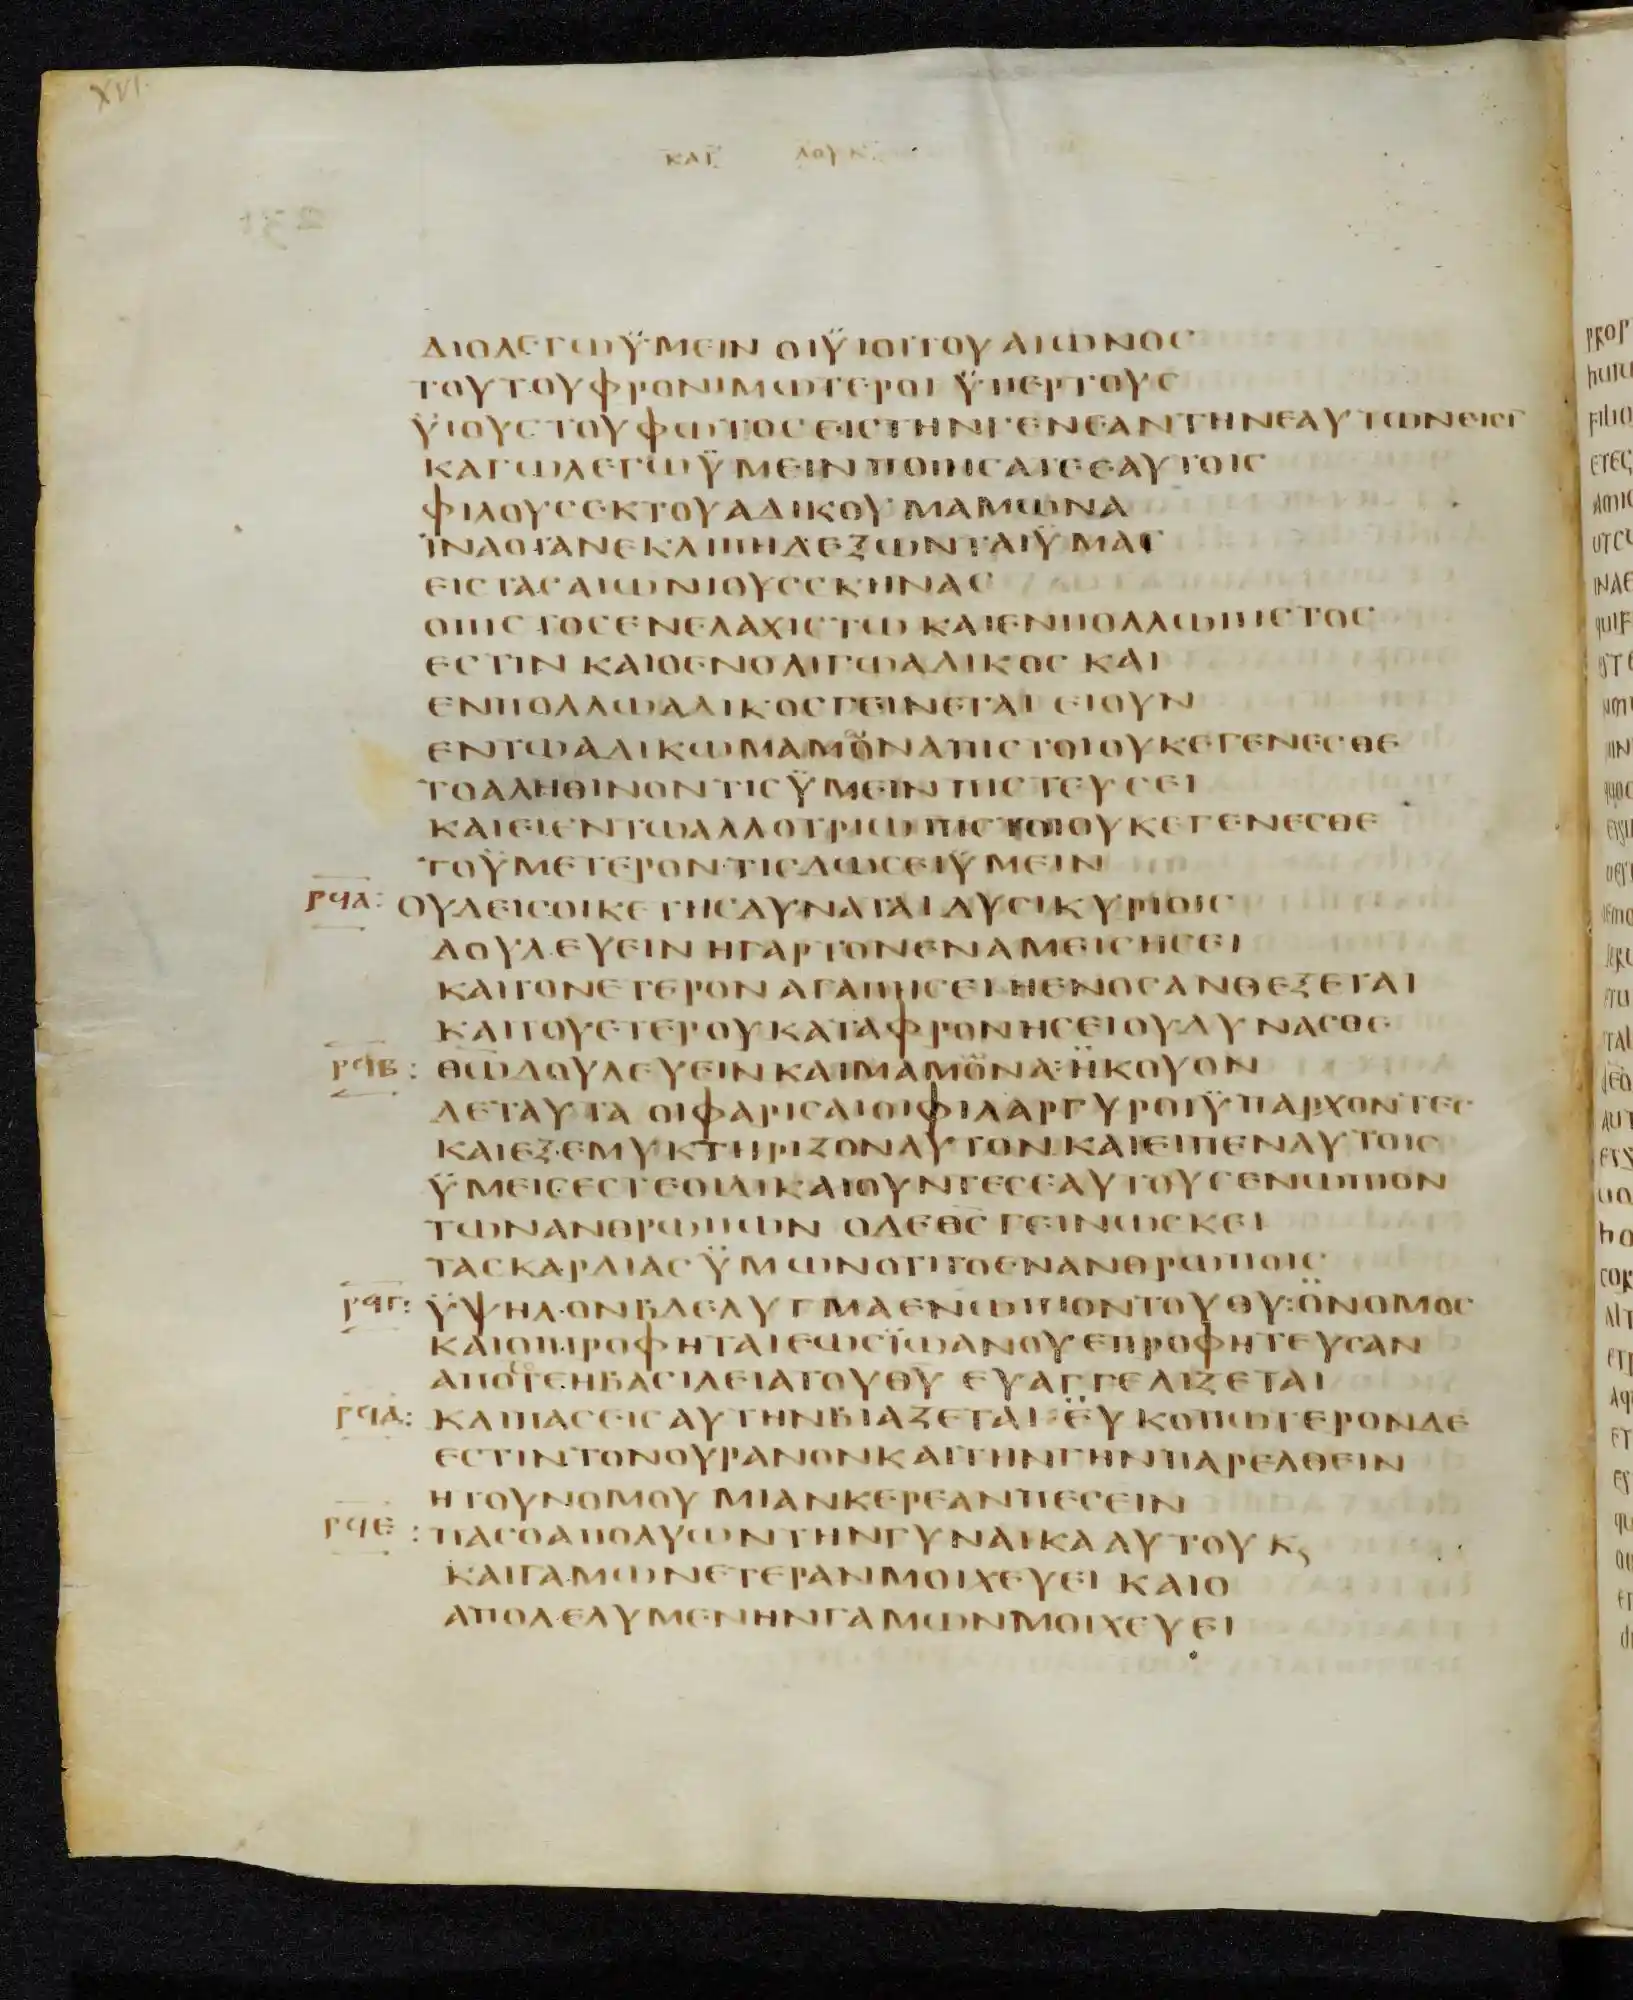 XVI.
ΚΑΤ ΛΟΥΚ
ΔΙΟΛΕΓΩΫΜΕΙΝ ΟΙΫΙΟΙΤΟΥ ΑΙΩΝΟС
ΤΟΥΤΟΥΦΡΟΝΙΜΩΤΕΡΟΙ ΫΠΕΡΤΟΥС
ΫΙΟΥСΤΟΥΦΩΤΟСΕΙСΤΗΝΓΕΝΕΑΝΤΗΝΕΑΥΤΩΝΕΙСΙ
ΚΑΓΩΛΕΓΩΫΜΕΙΝΠΟΙΗСΑΤΕΕΑΥΤΟΙС
ΦΙΛΟΥСΕΚΤΟΥΑΔΙΚΟΥΜΑΜΩΝΑ
ΪΝΑΟΤΑΝΕΚΛΙΠΗΔΕΞΩΝΤΑΙΫΜΑС
ΕΙСΤΑСΑΙΩΝΙΟΥССΚΗΝΑС
ΟΠΙСΤΟСΕΝΕΛΑΧΙСΤΩΚΑΙΕΝΠΟΛΛΩΠΙСΤΟС
ΕСΤΙΝ ΚΑΙΟΕΝΟΛΙΓΩΑΔΙΚΟС ΚΑΙ
ΕΝΠΟΛΛΩΑΔΙΚΟСΓΕΙΝΕΤΑΙ ΕΙΟΥΝ
ΕΝΤΩΑΔΙΚΩΜΑΜΩΝΑΠΙСΤΟΙΟΥΚΕΓΕΝΕСΘΕ
ΤΟΑΛΗΘΙΝΟΝΤΙСΫΜΕΙΝΠΙСΤΕΥСΕΙ
ΚΑΙΕΙΕΝΤΩΑΛΛΟΤΡΙΩΠΙСΤΟΙΟΥΚΕΓΕΝΕСΘΕ
ΤΟΫΜΕΤΕΡΟΝΤΙСΔΩСΕΙΫΜΕΙΝ
ΡϤΑ: ΟΥΔΕΙСΟΙΚΕΤΗСΔΥΝΑΤΑΙΔΥСΙΚΥΡΙΟΙС
ΔΟΥΛΕΥΕΙΝ ΗΓΑΡΤΟΝΕΝΑΜΕΙСΗСΕΙ
ΚΑΙΤΟΝΕΤΕΡΟΝ ΑΓΑΠΗСΕΙ ΗΕΝΟСΑΝΘΕΞΕΤΑΙ
ΚΑΙΤΟΥΕΤΕΡΟΥΚΑΤΑΦΡΟΝΗСΕΙΟΥΔΥΝΑСΘΕ
ΡϤΒ: ΘΩΔΟΥΛΕΥΕΙΝΚΑΙΜΑΜΩΝΑ:ΗΚΟΥΟΝ
ΔΕΤΑΥΤΑ ΟΙΦΑΡΙСΑΙΟΙΦΙΛΑΡΓΥΡΟΙΫΠΑΡΧΟΝΤΕС
ΚΑΙΕΞΕΜΥΚΤΗΡΙΖΟΝΑΥΤΟΝΚΑΙΕΙΠΕΝΑΥΤΟΙС
ΫΜΕΙСΕСΤΕΟΙΔΙΚΑΙΟΥΝΤΕСΕΑΥΤΟΥСΕΝΩΠΙΟΝ
ΤΩΝΑΝΘΡΩΠΩΝ ΟΔΕΘС ΓΕΙΝΩСΚΕΙ
ΤΑСΚΑΡΔΙΑСΫΜΩΝΟΤΙΤΟΕΝΑΝΘΡΩΠΟΙС
ΡϤΓ: ΫΨΗΛΟΝΒΔΕΛΥΓΜΑΕΝΩΠΙΟΝΤΟΥΘΥ:ΟΝΟΜΟС
ΚΑΙΟΙΠΡΟΦΗΤΑΙΕΩСΪΩΑΝΟΥΕΠΡΟΦΗΤΕΥСΑΝ
ΑΠΟΤΕΗΒΑСΙΛΕΙΑΤΟΥΘΥ ΕΥΑΓΓΕΛΙΖΕΤΑΙ
ΡϤΔ: ΚΑΙΠΑСΕΙСΑΥΤΗΝΒΙΑΖΕΤΑΙ:ΕΥΚΟΠΩΤΕΡΟΝΔΕ
ΕСΤΙΝΤΟΝΟΥΡΑΝΟΝΚΑΙΤΗΝΓΗΝΠΑΡΕΛΘΕΙΝ
ΗΤΟΥΝΟΜΟΥ ΜΙΑΝΚΕΡΕΑΝΠΕСΕΙΝ
ΡϤΕ: ΠΑСΟΑΠΟΛΥΩΝΤΗΝΓΥΝΑΙΚΑΑΥΤΟΥ Κς
ΚΑΙΓΑΜΩΝΕΤΕΡΑΝΜΟΙΧΕΥΕΙ ΚΑΙΟ
ΑΠΟΛΕΛΥΜΕΝΗΝΓΑΜΩΝΜΟΙΧΕΥΕΙ